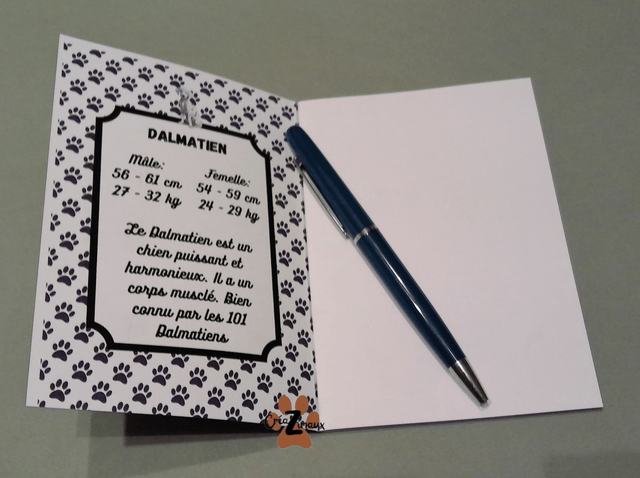 DALMATIEN
Mâle:
56 - 61 cm
27 - 32 kg
Femelle:
54 - 59 cm
24 - 29 kg
Le Dalmatien est un
chien puissant et
harmonieux. Il a un
corps musclé. Bien
connu par les 101
Dalmatiens
CréaZ'nimaux